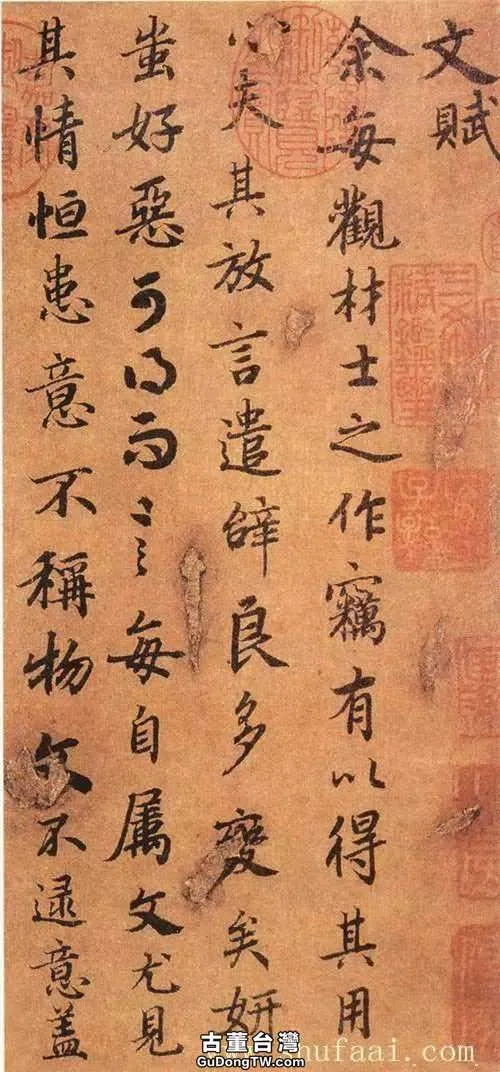 文賦
余每觀材士之作竊有以得其用
心夫其放言遣辭良多變矣妍
蚩好惡可得而言言每自属文尤見
其情恒患意不稱物文不逮意盖
古董台灣
GuDongTW.com
hufaai.com